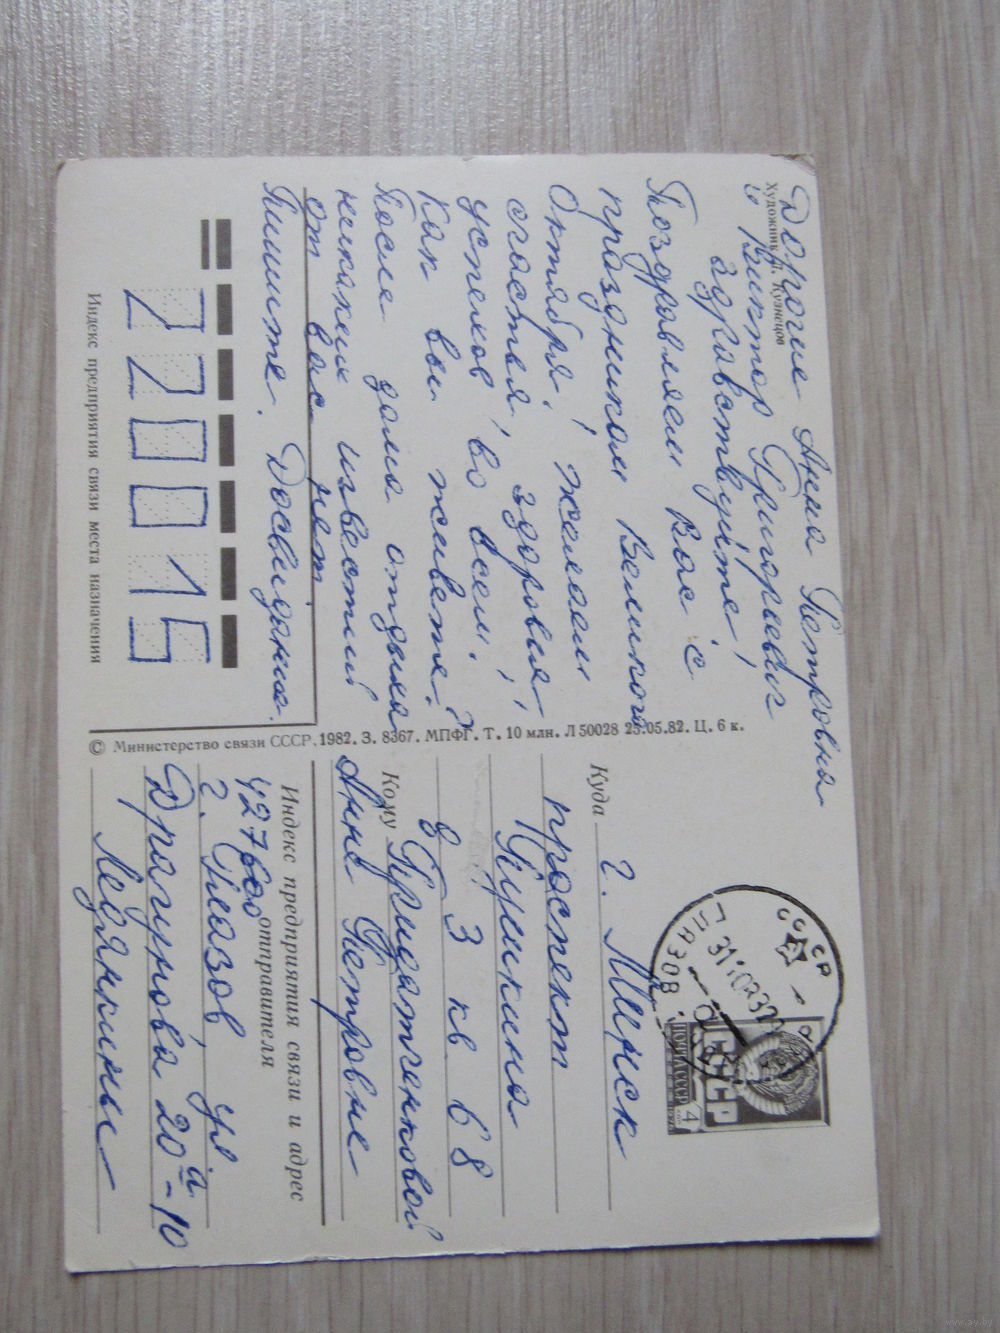 Художник Л. Кузнецов
Дорогие Анна Петровна
и Виктор Григорьевич
здравствуйте!
Поздравляем Вас с
праздником Великого
Октября! Желаем
счастья, здоровья,
успехов во всем!
Как вы живете?
После дома отдыха
никаких известий
от вас нет.
Пишите. Досвидания.
220015
Индекс предприятия связи места назначения
© Министерство связи СССР. 1982. З. 8367. МПФГ. Т. 10 млн. Л 50028 25.05.82. Ц. 6 к.
СССР
ГЛАЗОВ
ПОЧТА СССР
4
Куда г. Минск
проспект
Пушкина
д 3 кв 68
Кому
Анне Петровне
Индекс предприятия связи и адрес
отправителя
427600
г. Глазов, ул.
Драгунова 20а-10
Ледянкины
www.ay.by